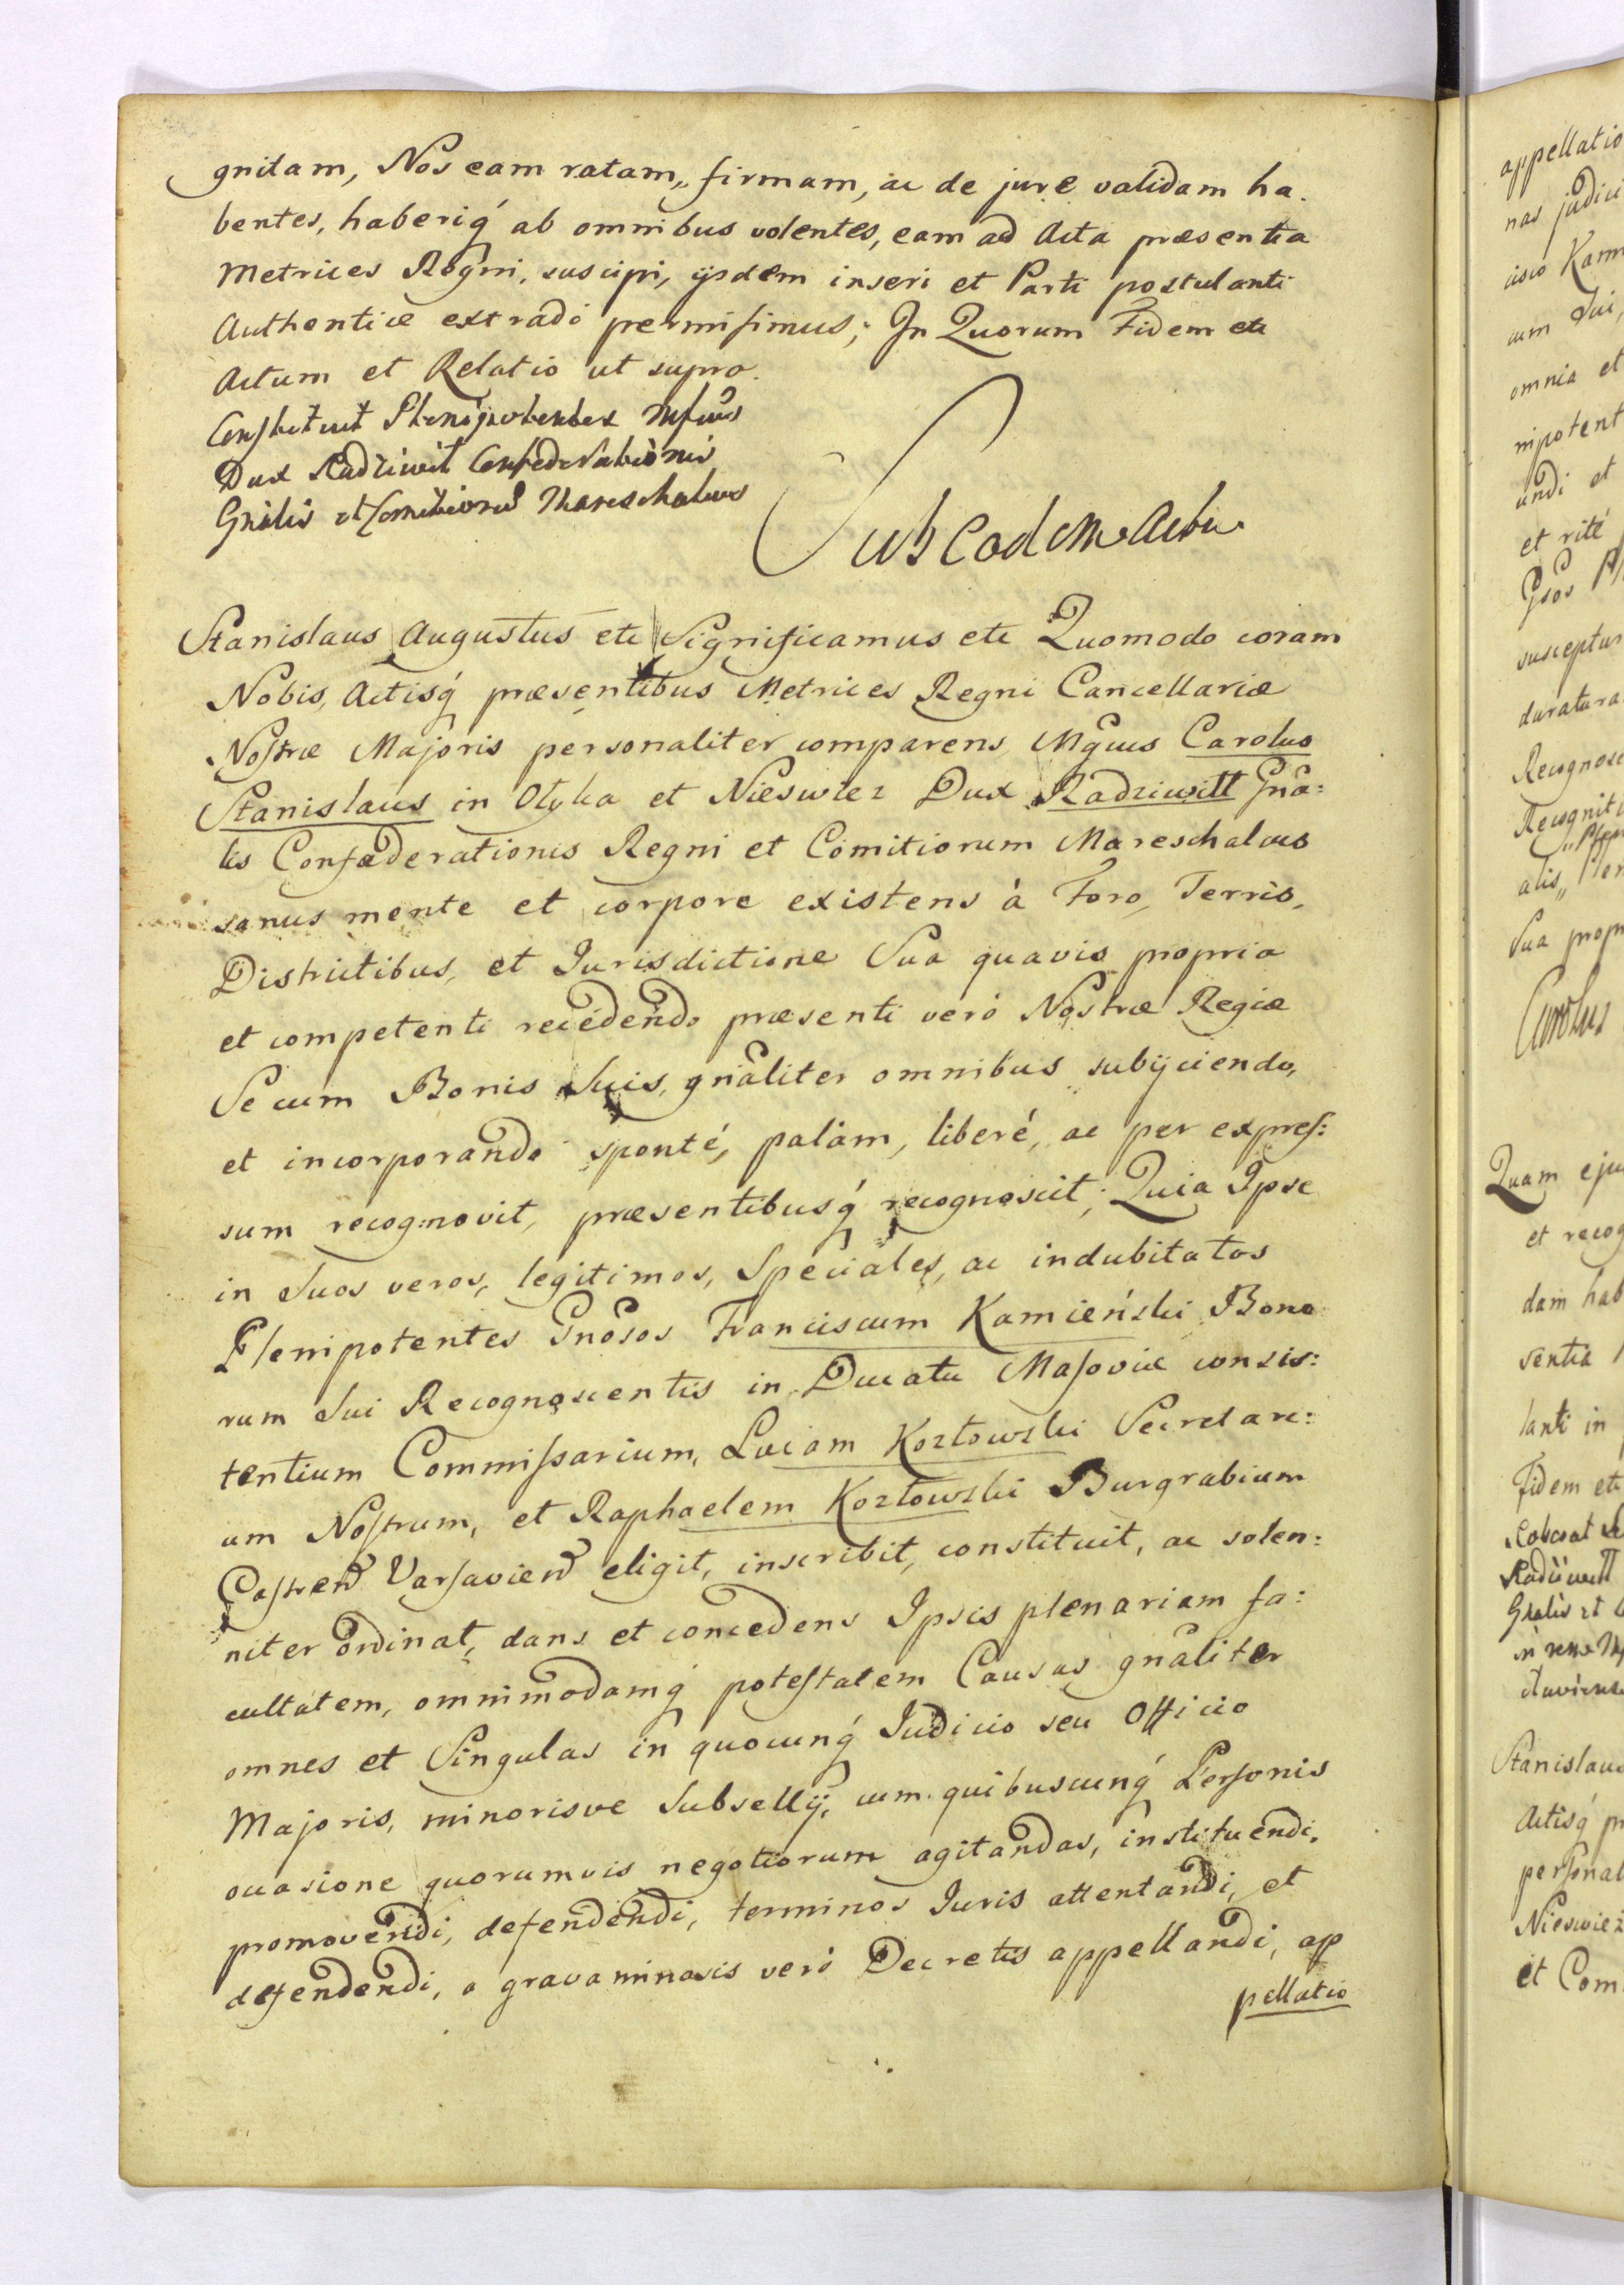 gnitam, Nos eam ratam, firmam, ac de jure validam ha.
bentes, haberiq́ ab omnibus volentes, eam ad Acta præsentia
Metrices Regni, suscipi, ijsdem inseri et Parti postulanti
Authenticè extradi permisimus; In Quorum Fidem etc
Actum et Relatio ut supra.
Constituit Plenipotentes Mgfcus
Dux Radziwił Confederationis
Gnãlis et Comitiorũ Mareschalcus
Sub Eodem Actu
Stanislaus Augustus etc Significamus etc Quomodo coram
Nobis, Actisq́ præsentibus Metrices Regni Cancellariæ
Nostræ Majoris personaliter comparens, Mgcus Carolus
Stanislaus in Ołyka et Nieswiez Dux Radziwiłł Gnã:
lis Confæderationis Regni et Comitiorum Mareschalcus
sanus mente et corpore existens à Foro, Terris,
Districtibus, et Jurisdictione Sua quavis propria
et competenti recedendo præsenti veró Nostræ Regiæ
Se cum Bonis Suis, gnãliter omnibus subijciendo,
et incorporando sponté, palàm, liberé, ac per expres:
sum recognovit, præsentibusq́ recognoscit; Quia Ipse
in Suos veros, legitimos, Speciales, ac indubitatos
Plenipotentes Gnosos Franciscum Kamieński Bono
rum Sui Recognoscentis in Ducatu Masoviæ consis:
tentium Commissarium, Lucam Kozłowski Secretari:
um Nostrum, et Raphaelem Kozłowski Burgrabium
Castreñ Varsavieñ eligit, inscribit, constituit, ac solen:
niter ordinat, dans et concedens Ipsis plenariam fa:
cultatem, omnimodamq́ potestatem Causas gnãliter
omnes et Singulas in quocunq́ Judicio seu Officio
Majoris, minorisve Subsellij, cum quibuscunq́ Personis
occasione quorumvis negotiorum agitandas, instituendi,
promovendi, defendendi, terminos Juris attentandi, et
defendendi, a gravaminosis veró Decretis appellandi, ap
pellatio
appellatio
nas judici
cum Sui,
omnia et
nipotent
undi et
et rité
susceptur
duratura
Recognosc
Recogniti
alis,
Sua propr
Carolus
Quam eju
et recog
dam hab
sentia
lanti in
Fidem etc
Radziwiłł
Gnalis et
Stanislaus
Actisq́ pr
personal
Nieswież
et Com